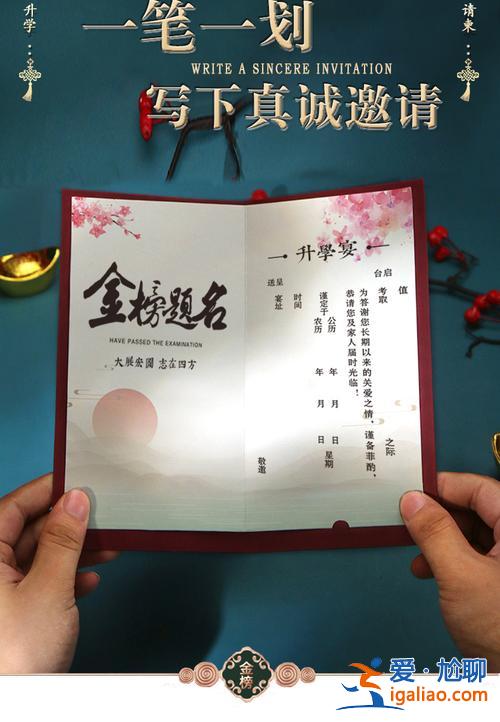 升学
请柬
一笔一划
WRITE A SINCERE INVITATION
写下真诚邀请
金榜题名
HAVE PASSED THE EXAMINATION
大展宏圖 志在四方
升學宴
送呈
台启
值
考取
之际
为答谢您长期以来的关爱之情，谨备菲酌，
恭请您及家人届时光临！
谨定于
公历 年 月 日 星期
农历 年 月 日
时间
宴址
敬邀
金榜
爱·尬聊
igaliao.com